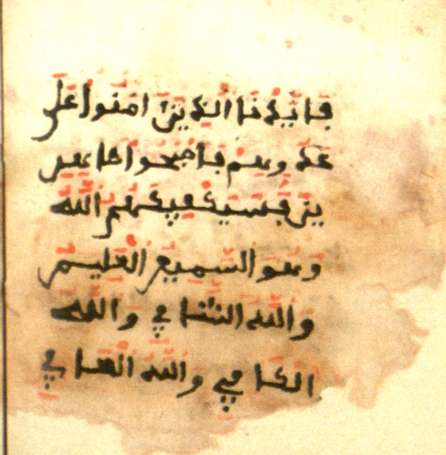 فايدنا الذين امنوا على
عدوهم فاصبحوا ظاهر
ين فسيكفيكهم الله
وهو السميع العليم
والله الشافي والله
الكافي والله المعافي